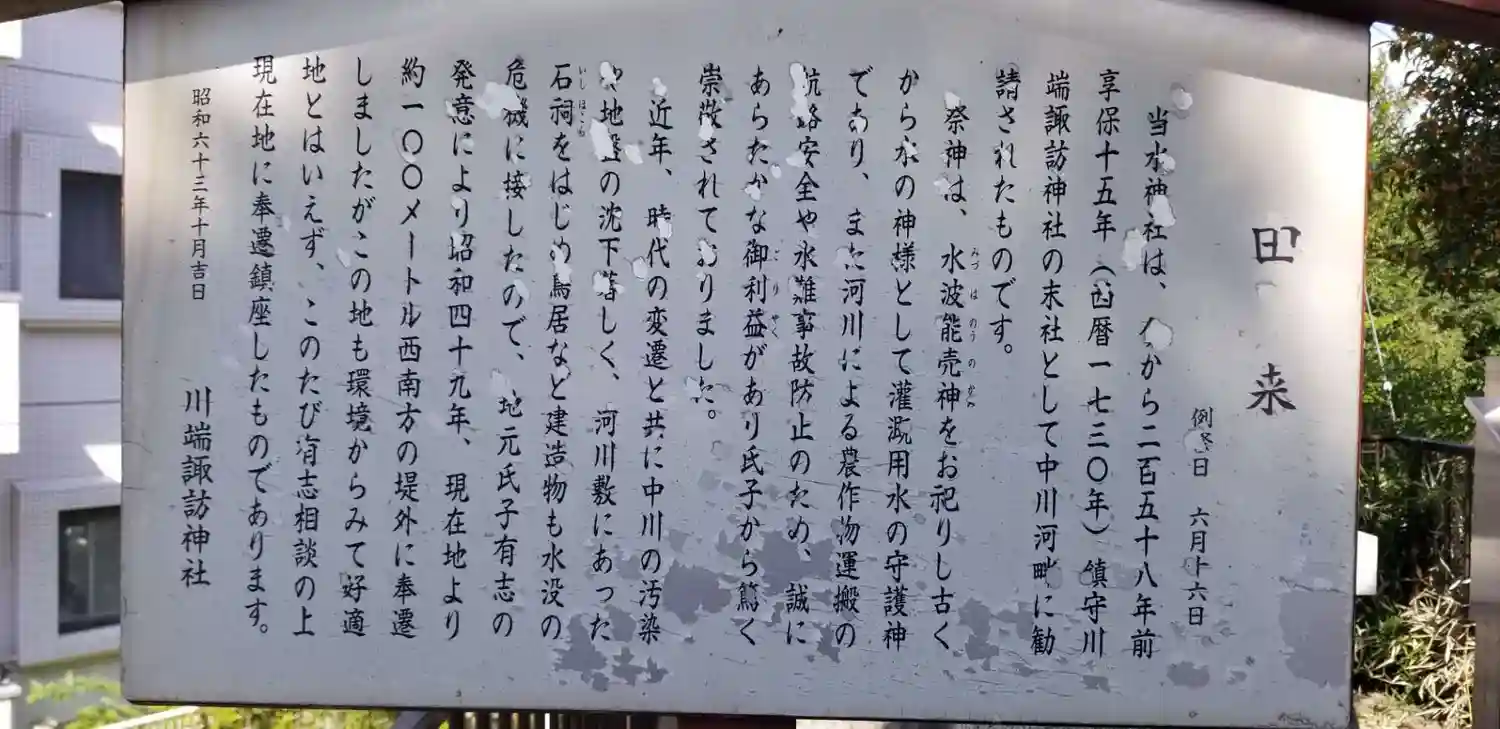 由来
例祭日 六月十六日
当水神社は、今から二百五十八年前
享保十五年（西暦一七三〇年）鎮守川
端諏訪神社の末社として中川河畔に勧
請されたものです。
祭神は、水波能売神をお祀りし古く
から水の神様として灌漑用水の守護神
であり、また河川による農作物運搬の
航路安全や水難事故防止のため、誠に
あらたかな御利益があり氏子から篤く
崇敬されておりました。
近年、時代の変遷と共に中川の汚染
や地盤の沈下著しく、河川敷にあった
石祠をはじめ鳥居など建造物も水没の
危機に接したので、地元氏子有志の
発意により昭和四十九年、現在地より
約一〇〇メートル西南方の堤外に奉遷
しましたがこの地も環境からみて好適
地とはいえず、このたび有志相談の上
現在地に奉遷鎮座したものであります。
昭和六十三年十月吉日
川端諏訪神社